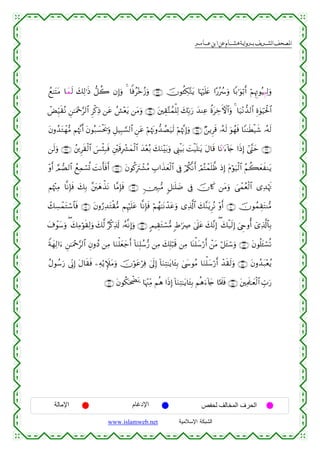 المصحف الشريف برواية هشام عن ابن عامر
وَلِبُيُوتِهِمْ أَبْوَٰبًا وَسُرُرًا عَلَيْهَا يَتَّكِـُٔونَ وَزُخْرُفًا وَإِن كُلُّ ذَٰلِكَ لَمَّا مَتَٰعُ
ٱلْحَيَوٰةِ ٱلدُّنْيَا وَٱلْءَاخِرَةُ عِندَ رَبِّكَ لِلْمُتَّقِينَ وَمَن يَعْشُ عَن ذِكْرِ ٱلرَّحْمَٰنِ نُقَيِّضْ
لَهُۥ شَيْطَٰنًا فَهُوَ لَهُۥ قَرِينٌ وَإِنَّهُمْ لَيَصُدُّونَهُمْ عَنِ ٱلسَّبِيلِ وَيَحْسِبُونَ أَنَّهُم مُّهْتَدُونَ
حَتَّىٰٓ إِذَا جَآءَانَا قَالَ يَٰلَيْتَ بَيْنِى وَبَيْنَكَ بُعْدَ ٱلْمَشْرِقَيْنِ فَبِئْسَ ٱلْقَرِينُ وَلَن
يَنفَعَكُمُ ٱلْيَوْمَ إِذ ظَّلَمْتُمْ أَنَّكُمْ فِى ٱلْعَذَابِ مُشْتَرِكُونَ أَفَأَنتَ تُسْمِعُ ٱلصُّمَّ أَوْ
تَهْدِى ٱلْعُمْىَ وَمَن كَانَ فِى ضَلَٰلٍ مُّبِينٍ فَإِمَّا نَذْهَبَنَّ بِكَ فَإِنَّا مِنْهُم
مُّنتَقِمُونَ أَوْ نُرِيَنَّكَ ٱلَّذِى وَعَدْنَٰهُمْ فَإِنَّا عَلَيْهِم مُّقْتَدِرُونَ فَٱسْتَمْسِكْ
بِٱلَّذِىٓ أُوحِىَ إِلَيْكَ إِنَّكَ عَلَىٰ صِرَٰطٍ مُّسْتَقِيمٍ وَإِنَّهُۥ لَذِكْرٌ لَّكَ وَلِقَوْمِكَ وَسَوْفَ
تُسْـَٔلُونَ وَسْـَٔلْ مَنْ أَرْسَلْنَا مِن قَبْلِكَ مِن رُّسُلِنَآ أَجَعَلْنَا مِن دُونِ ٱلرَّحْمَٰنِ ءَالِهَةً
يُعْبَدُونَ وَلَقَدْ أَرْسَلْنَا مُوسَىٰ بِـَٔايَٰتِنَآ إِلَىٰ فِرْعَوْنَ وَمَلَإِي۟هِۦ فَقَالَ إِنِّى رَسُولُ
رَبِّ ٱلْعَٰلَمِينَ فَلَمَّا جَآءَهُم بِـَٔايَٰتِنَآ إِذَا هُم مِّنْهَا يَضْحَكُونَ
الحرف المخالف لحفص الإدغام الإمالة
الشبكة الإسلامية www.islamweb.net